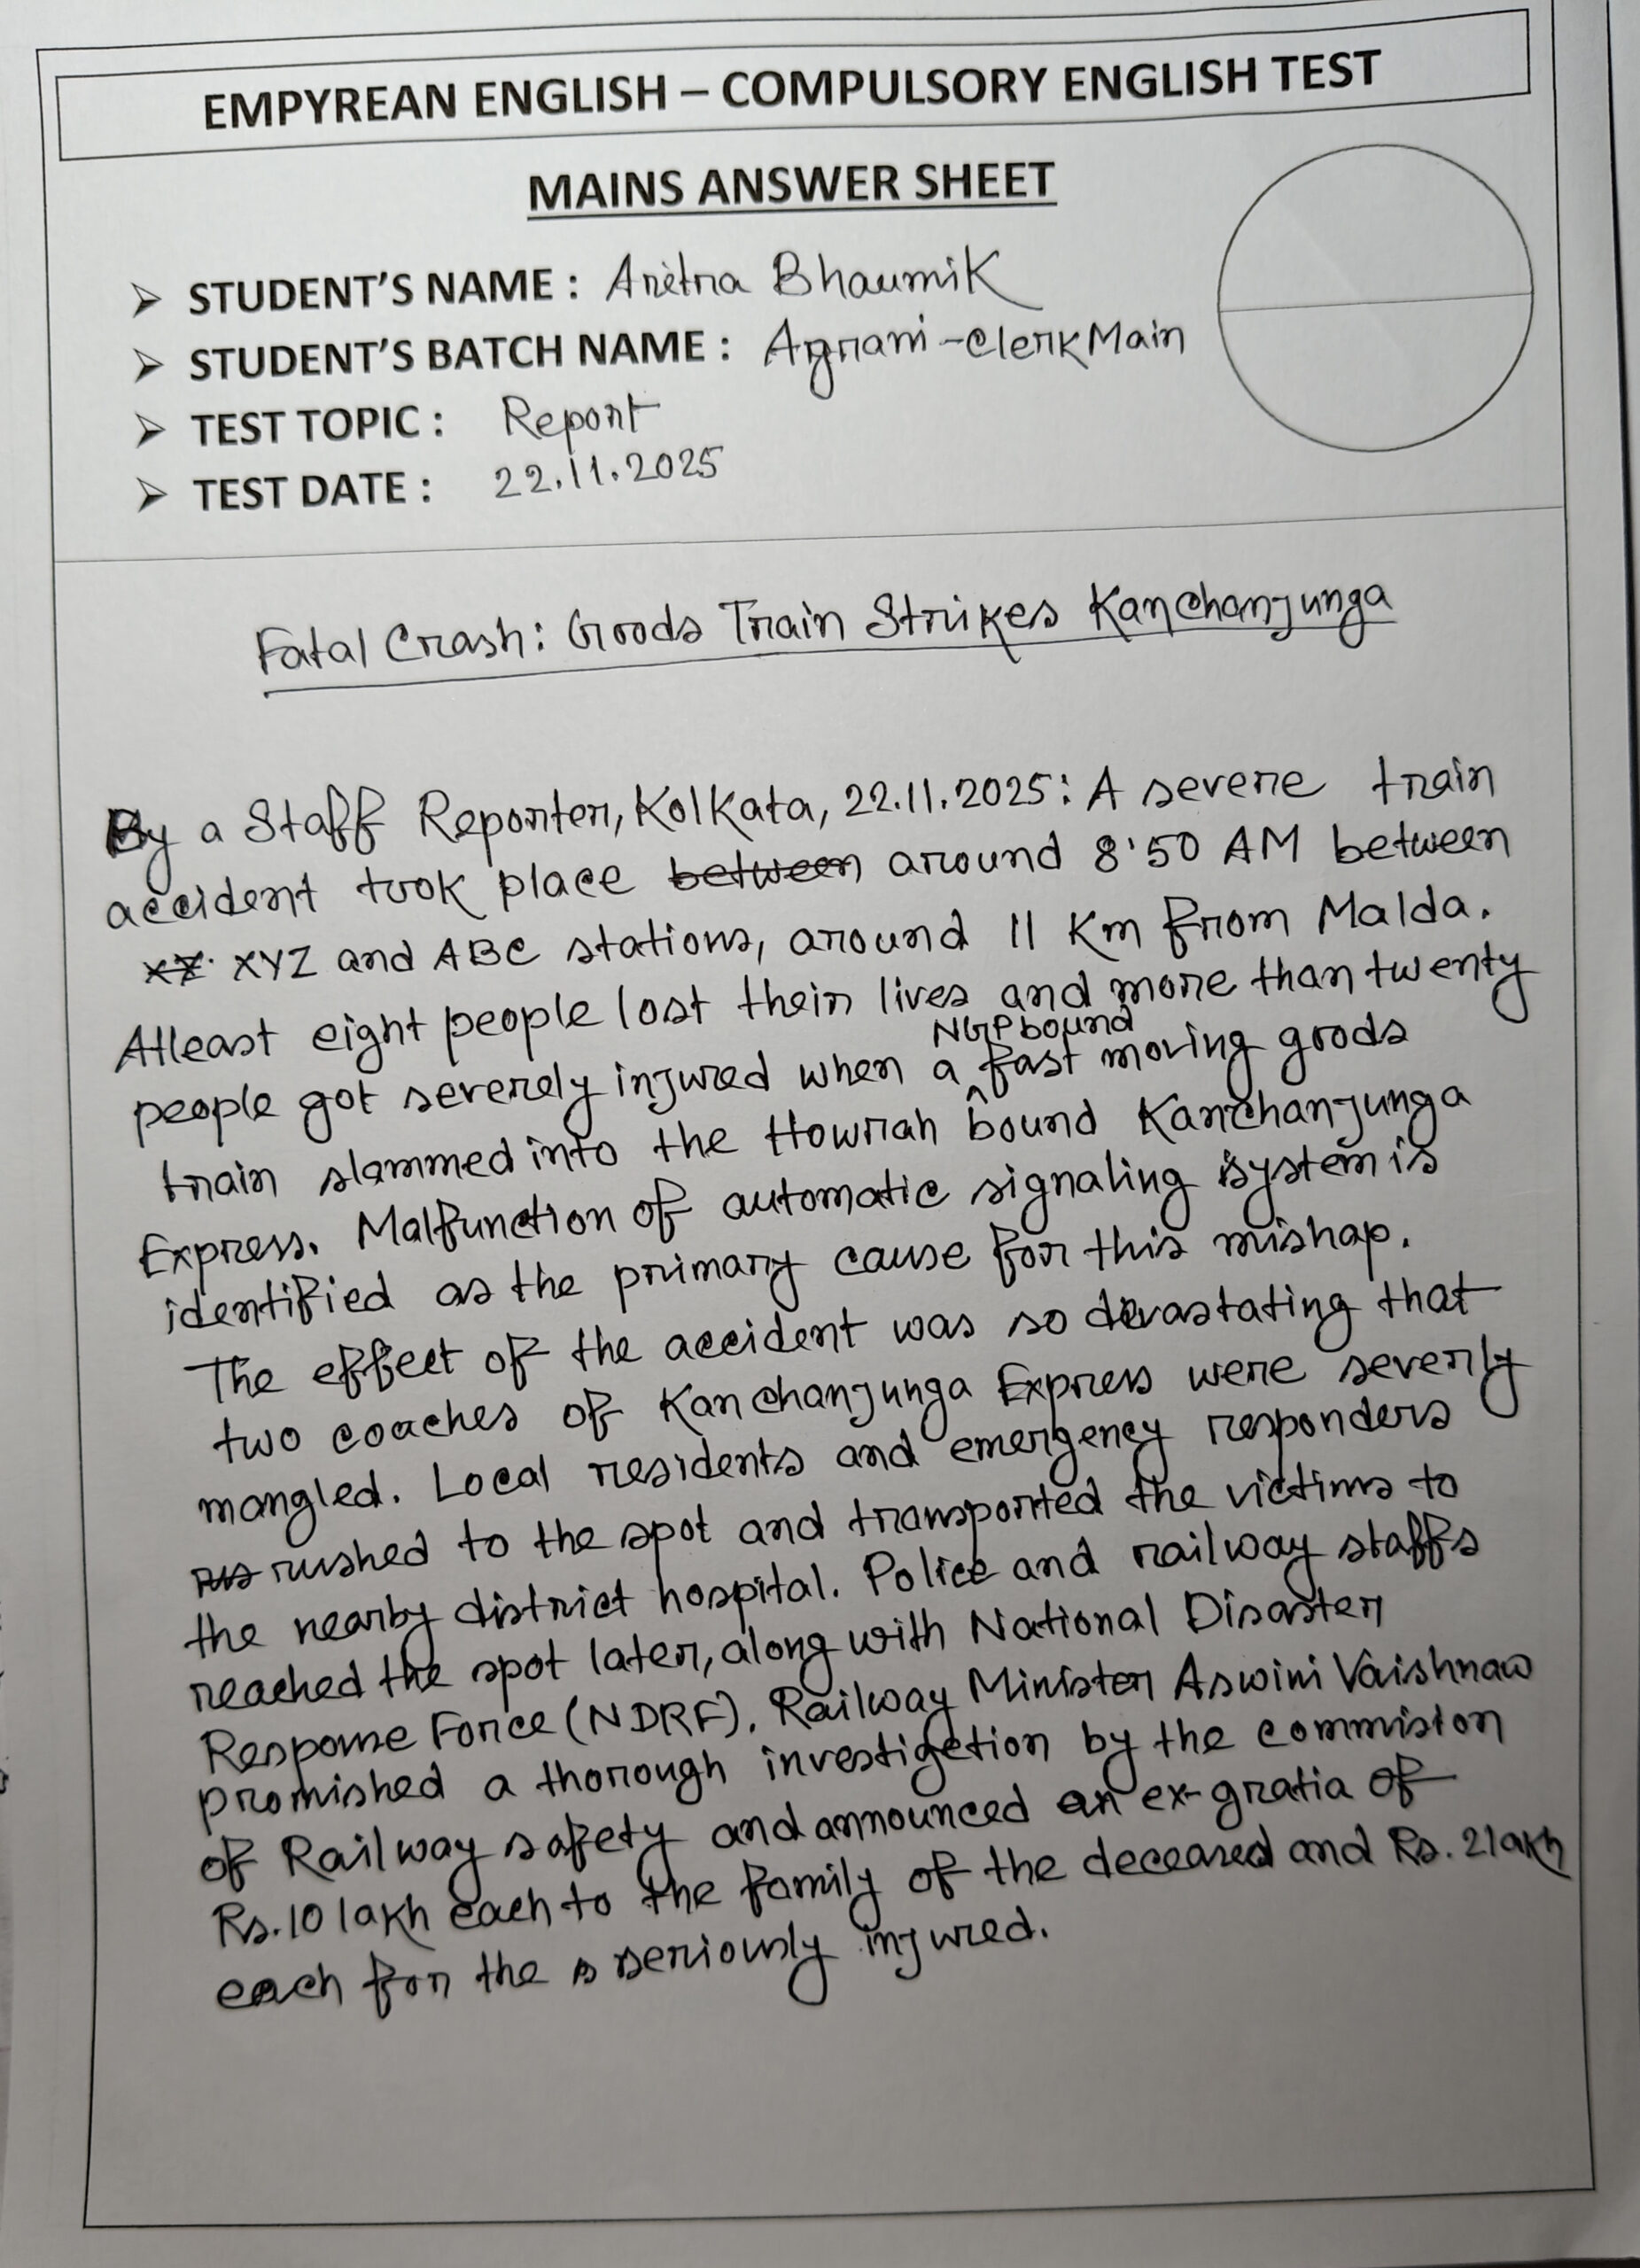 EMPYREAN ENGLISH – COMPULSORY ENGLISH TEST
MAINS ANSWER SHEET
➢ STUDENT'S NAME : Aritra Bhaumik
➢ STUDENT'S BATCH NAME : Agrani - Clerk Main
➢ TEST TOPIC : Report
➢ TEST DATE : 22.11.2025
Fatal Crash: Goods Train Strikes Kanchanjunga
By a Staff Reporter, Kolkata, 22.11.2025: A severe train
accident took place between around 8'50 AM between
XYZ and ABC stations, around 11 Km from Malda.
Atleast eight people lost their lives and more than twenty
NGP bound
people got severely injured when a fast moving goods
train slammed into the Howrah bound Kanchanjunga
Express. Malfunction of automatic signaling system is
identified as the primary cause for this mishap.
The effect of the accident was so devastating that
two coaches of Kanchanjunga Express were severly
mangled. Local residents and emergency responders
rus rushed to the spot and transported the victims to
the nearby district hospital. Police and railway staffs
reached the spot later, along with National Disaster
Response Force (NDRF). Railway Minister Aswini Vaishnaw
promished a thorough investigetion by the commision
of Railway safety and announced an ex-gratia of
Rs. 10 lakh each to the family of the deceased and Rs. 2 lakh
each for the s seriously injured.